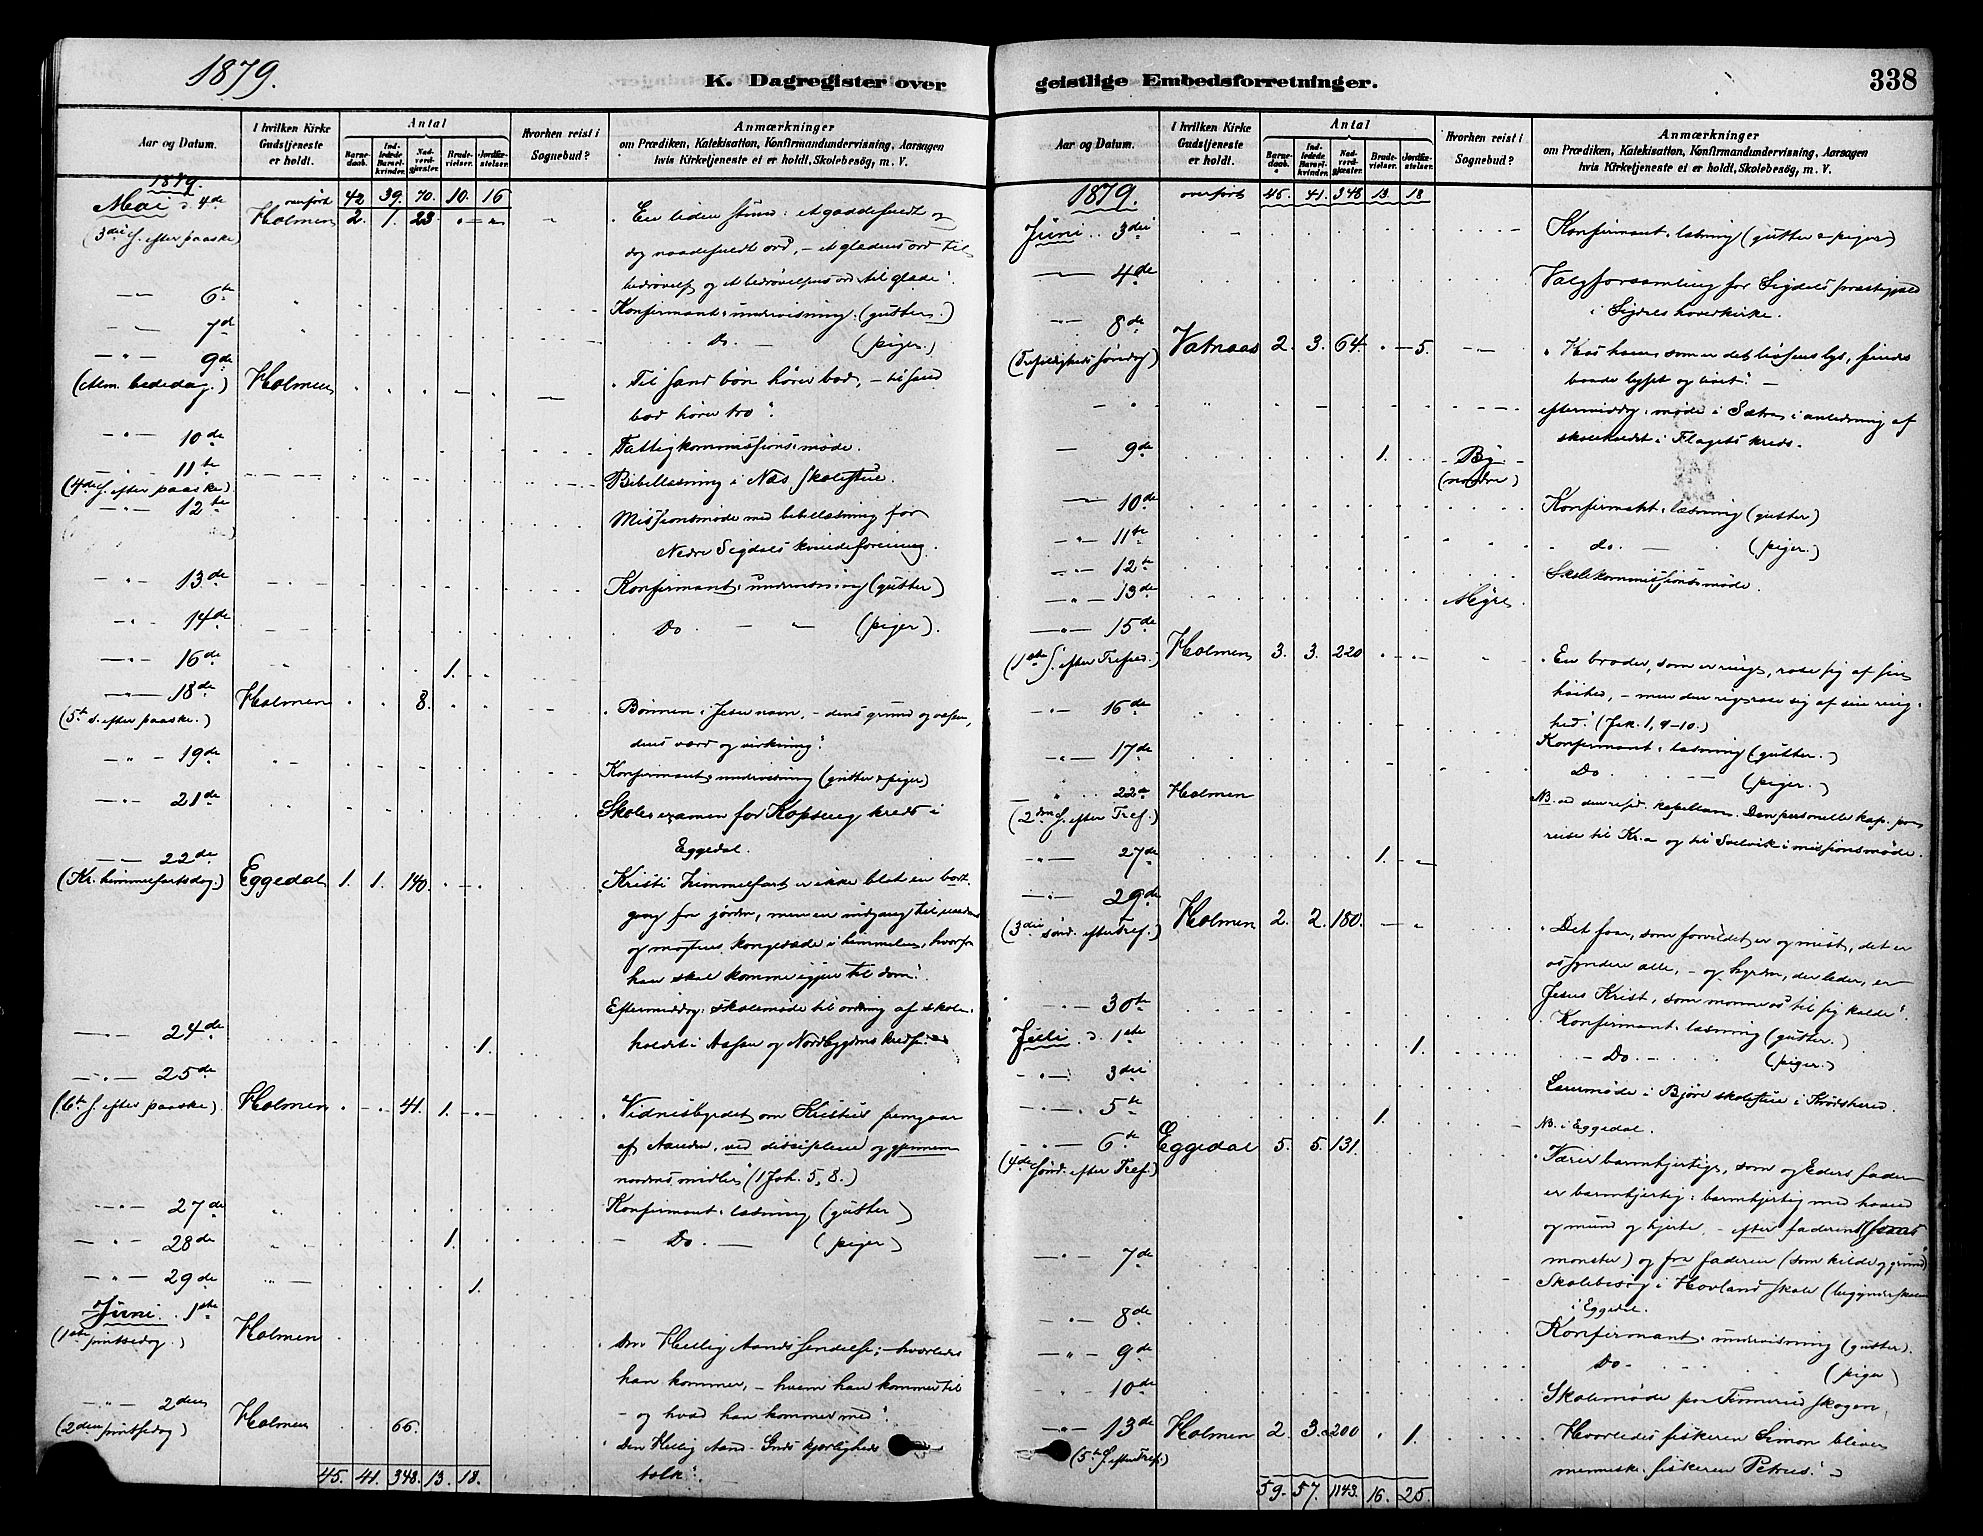 1879.
K. Dagregister over
geistlige Embedsforretninger.
338
Aar og Datum.
I hvilken Kirke Gudstjeneste er holdt.
Antal
Barnedaab.
Indledede Barselkvinder.
Nadverdgjæster.
Brudevielser.
Jordfæstelser.
Hvorhen reist i Sognebud?
Anmærkninger
om Prædiken, Katekisation, Konfirmandundervisning, Aarsagen
hvis Kirketjeneste ei er holdt, Skolebesøg, m. V.
1879.
overført 42 39. 70. 10. 16
Mai d. 4de Holmen 2. 1. 23. En liden stund: et
(3die S. efter paaske) og naadefuldt ord, – et glædens ord til
bedrøvede og et bedrøvelsens ord til glade".
6te Konfirmant-undervisning. (gutter.)
7de Do. (piger.)
9de
(Alm. bededag.) Holmen "Til sand bøn hører bod, – til sand
bod hører tro".
10de Fattigkommissionsmøde.
11te
(4de S. efter paaske) Bibellæsning i Næs skolestue.
12te Missionsmøde med bibellæsning for
Nedre Sigdals kvindeforening.
13de Konfirmant-undervisning (gutter)
14de Do (piger).
16de 1.
18de Holmen 8. "Bønnen i Jesu navn, – dens grund og væsen,
(5te S. efter paaske.) dens værd og virkning".
19de Konfirmant-undervisning (gutter & piger)
21de Skole-examen for Kopseng kreds i
Eggedal.
22de
(Kr. himmelfartsdag) Eggedal 1. 1. 140. "Kristi himmelfart er ikke blot en bort-
gang fra jorden, men en indgang til
og magtens kongesæde i himmelen, hvorfra
han skal komme igjen til dom".
Eftermiddag: skolemøde til ordning af skole-
24de 1. holdet i Aasen og Nordbygdens kredse.
25de
(6te S. efter paaske) Holmen 41. 1. "Vidnesbyrdet om Kristus fremgaar
af Aanden, ved disciplene og gjennem
naadens midler" (1 Joh. 5, 8.)
27de Konfirmant-læsning (gutter)
28de 1. Do (piger)
29de 1.
Juni 1ste
(1ste pintsedag.) Holmen Den Hellig Aands sendelse; – hvorledes
han kommer, – hvem han kommer til
2den – og hvad han kommer med".
(2den pintsedag) Holmen 66. Den Hellig Aand – Guds kjærligheds
tolk".
45. 41. 348. 13. 18.
Aar og Datum.
I hvilken Kirke Gudstjeneste er holdt.
Antal
Barnedaab.
Indledede Barselkvinder.
Nadverdgjæster.
Brudevielser.
Jordfæstelser.
Hvorhen reist i Sognebud?
Anmærkninger
om Prædiken, Katekisation, Konfirmandundervisning, Aarsagen
hvis Kirketjeneste ei er holdt, Skolebesøg, m. V.
1879. overført 45. 41. 348 13. 18
Juni 3die Konfirmant-læsning (gutter & piger)
4de Valgforsamling for Sigdals præstegjæld
i Sigdals hovedkirke.
8de
(Trefoldigheds søndag) Vatnaas 2. 3. 64. 5. "Hos ham, som er det lys, findes
baade lyset og livet". –
eftermiddag: møde i Sætra i anledning af
skoleholdet i Flagets kreds.
9de 1. By
(nordre)
10de Konfirmant-læsning (gutter)
11te do. (piger.)
12te Skolekommissionsmøde.
13de Myre
15de
(1ste S. efter Trefold.) Holmen 3. 3. 220 "En broder, som er ringe, rose sig af sin
høihed, – men den rige rose sig af sin ring-
16de hed". (Jak. 1, 9–10.)
17de Konfirmant-læsning (gutter.)
Do. (piger.)
22de Holmen NB. ved den resid. kapellan. Den personelle kap. paa
(2den S. efter Tref.) reise til Kr.a og til Svelvik i missionsmøde.
27de 1.
29de
(3die sønd. efter Tref.) Holmen 2. 2. 180. "Det faar, som forvildet er og mist, det er
os syndere alle, – og hyrden, der leder, er
30te Jesus Krist, som monne os til sig kalde".
Konfirmant-læsning (gutter.)
Juli d 1ste 1. Do – (piger.)
3die Lærermøde i Bjøre skolestue i Krødshered.
5te 1. NB. i Eggedal.
6te Eggedal 5. 5. 131. "Værer barmhjertige, som og Eders fader
(4de sønd. efter Tref.) er barmhjertig: barmhjertig med haand
og mund og hjerte, – efter faderens
7de mønster) og fra faderen (som kilde og grund)
Skolebesøg i Hovland skole
i Eggedal.
8de Konfirmant-undervisning (gutter).
9de Do – (piger)
10de Skolemøde paa Timmerud skogen
13de Holmen 2. 3. 200 1. Hvorledes fiskeren Simon bliver
(5te S. efter Tref.) menneske-fiskeren Petrus".
59. 57. 1143. 16. 25.